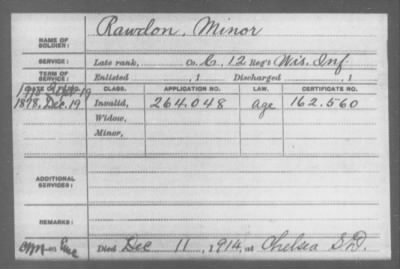 NAME OF SOLDIER: Rawdon, Minor
SERVICE: Late rank, Co. C, 12 Reg't Wis. Inf
TERM OF SERVICE: Enlisted , 1 Discharged , 1
CLASS. APPLICATION NO. LAW. CERTIFICATE NO.
1878, Dec. 19 Invalid, 264.048 age 162.560
Widow,
Minor,
ADDITIONAL SERVICES:
REMARKS:
Died Dec 11, 1914, at Chelsea S.D.